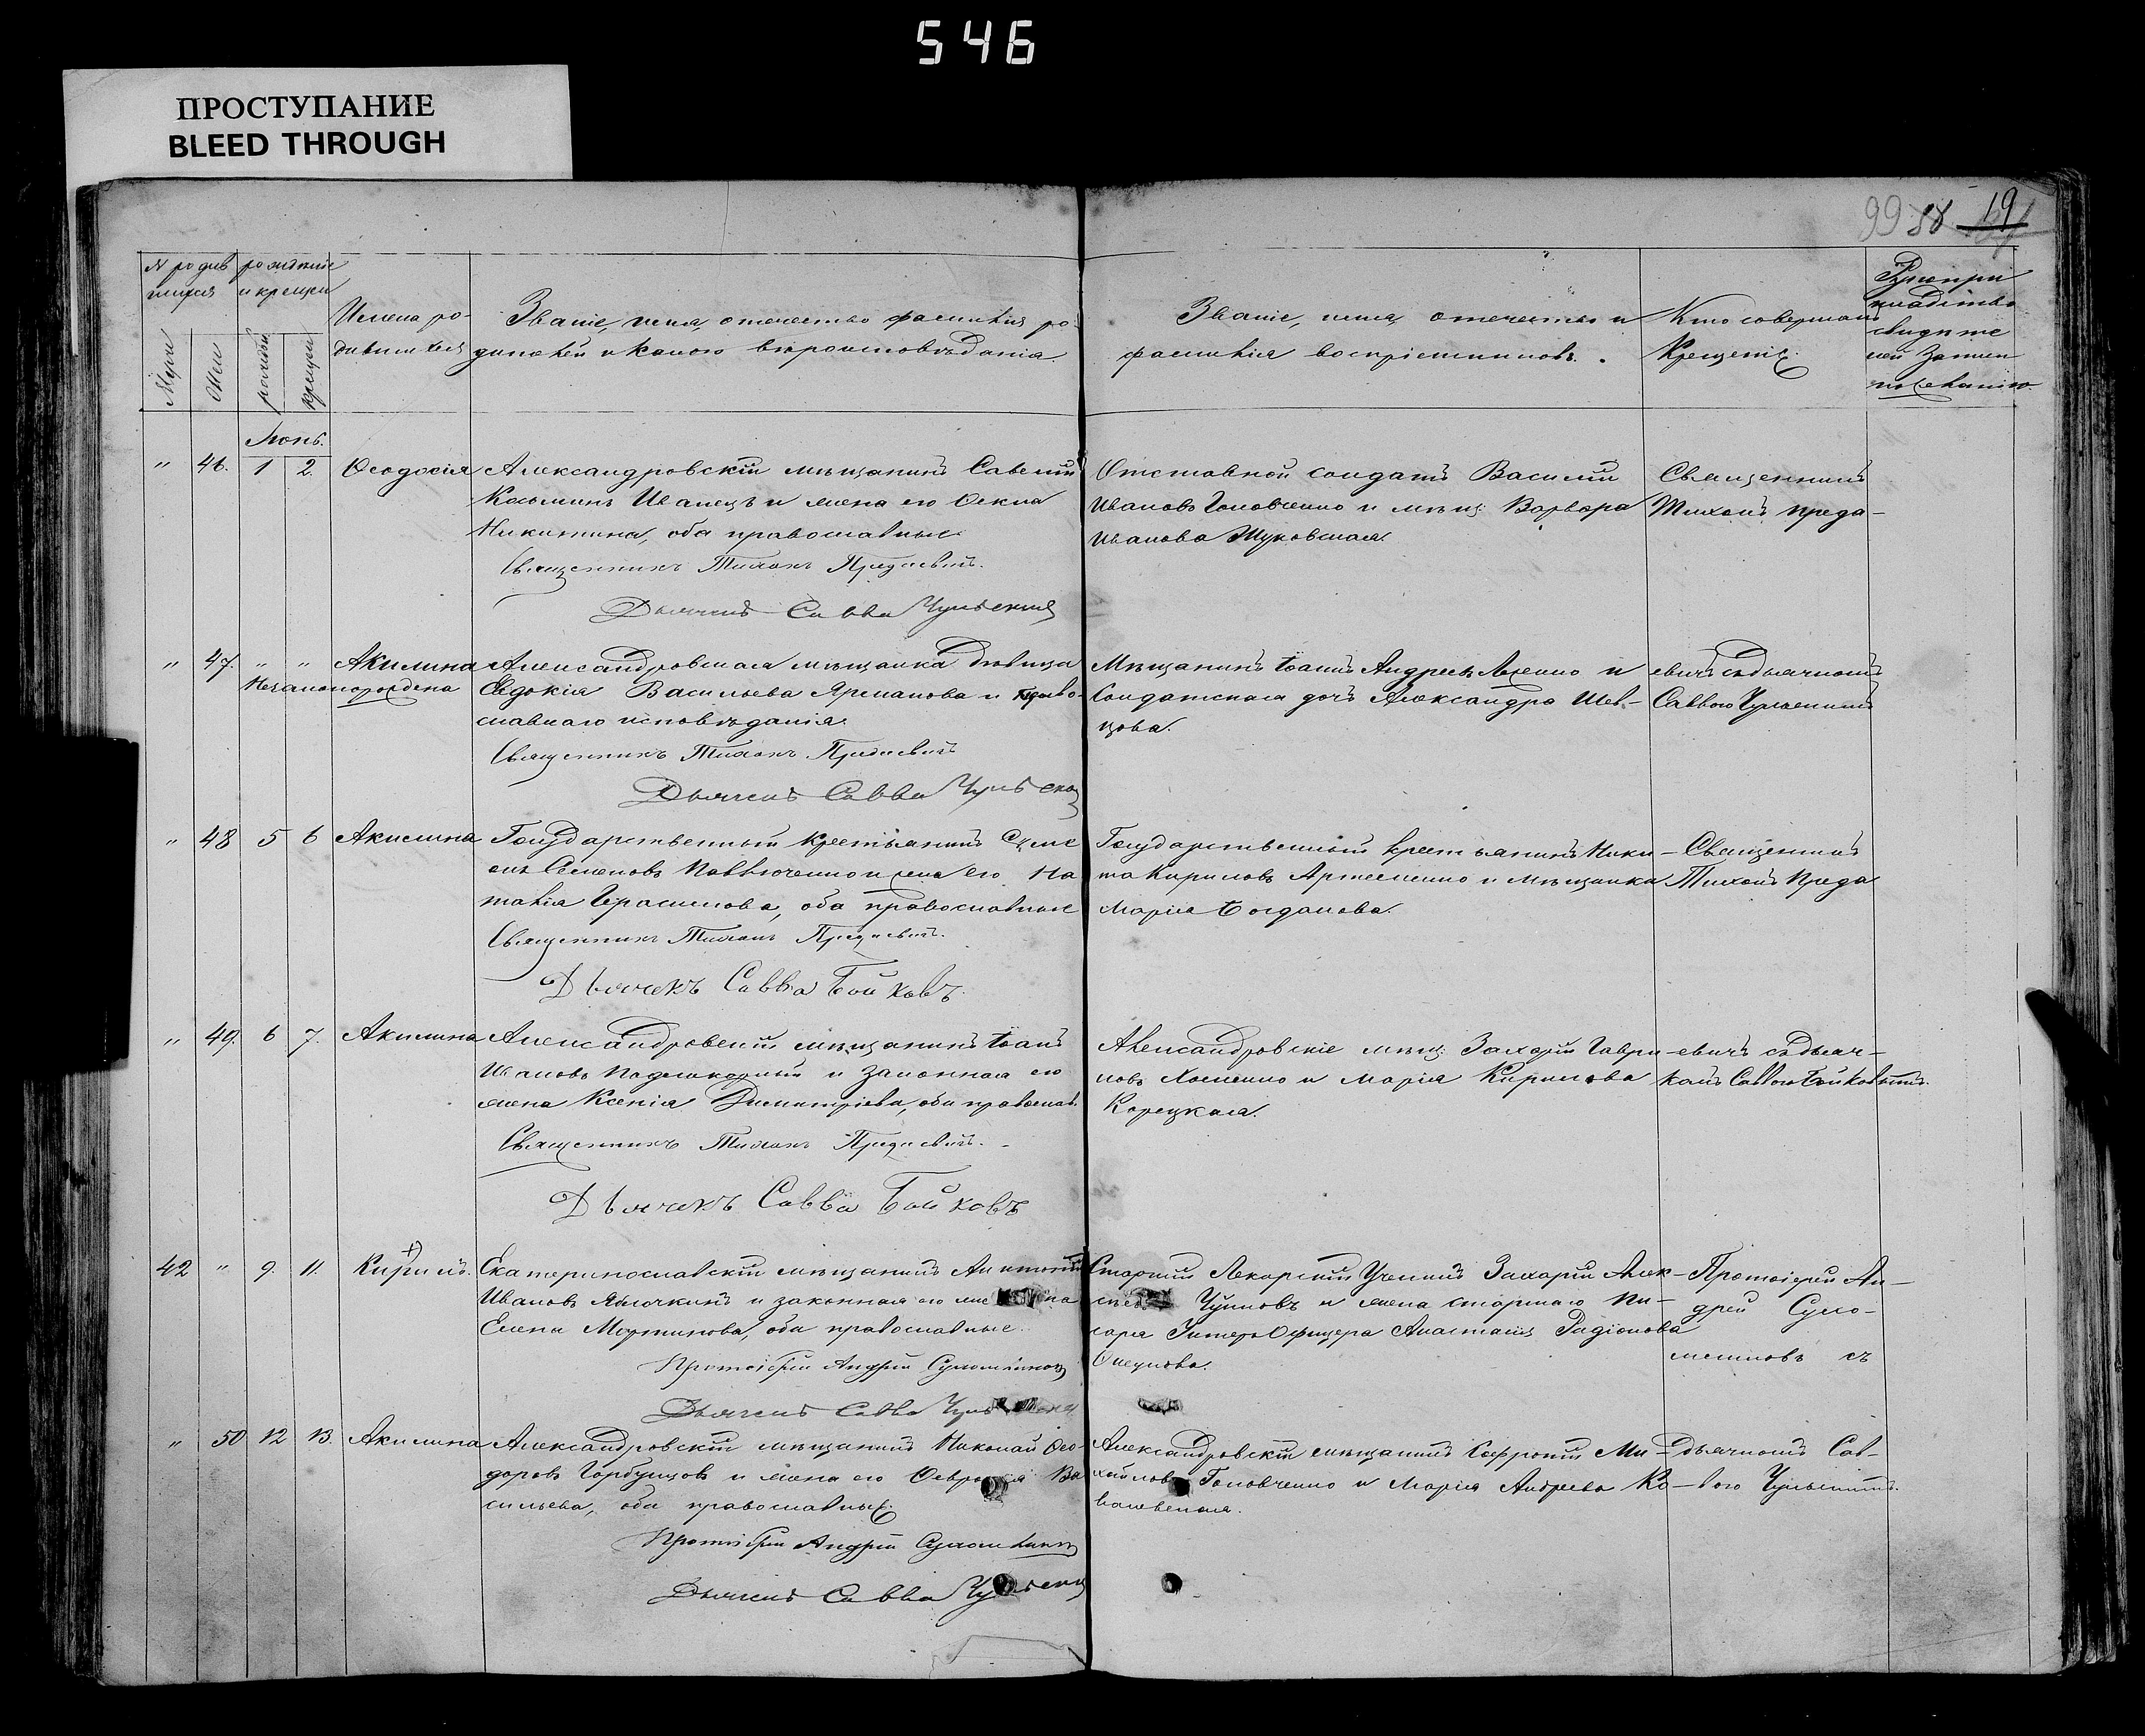 546
ПРОСТУПАНИЕ
BLEED THROUGH
99 88 19
№ родив рожденіе
шихся и крещен
Муж Жен рожден крещен
Имена ро-
дившихся
Званіе, имя, отечество фамилія ро-
дителей и какого вѣроисповѣданія
Званіе, имя, отечество и
фамилія воспріемниковъ.
Кто совершалъ
Крещеніе
Рукопри
кладство
свидѣте
лей записи
по желанію.
Іюнь.
" 46. 1 2. Ѳеодосія
Александровскій мѣщанинъ Савелій
Козьминъ Иванецъ и жена его Ѳекла
Никитина, оба православные
Священникъ Тихонъ Предаевичъ.
Дьячекъ Савва
Отставной солдатъ Василій
Ивановъ Головченко и мѣщ. Варвара
Иванова Жуковская.
Священникъ
Тихонъ Преда-
" 47. " " Акилина
Незаконорождена
Александровская мѣщанка дѣвица
Евдокія Васильева Ярманова и право-
славнаго исповѣданія.
Священникъ Тихонъ Предаевичъ
Дьячекъ Савва
Мѣщанинъ Іоаннъ Андреевъ и
Солдатская дочь Александра Шев-
цова.
евичъ съ дьячкомъ
Саввою
" 48 5 6 Акилина
Государственный крестьянинъ Симе
онъ Семеновъ и жена его На
талія Герасимова, оба православные
Священникъ Тихонъ Предаевичъ.
Дьячекъ Савва Бойковъ.
Государственный крестьянинъ Ники-
та Кириловъ Артеменко и мѣщанка
Марія Богданова.
Священникъ
Тихонъ Преда
" 49. 6 7. Акилина
Александровскій мѣщанинъ Іоаннъ
Ивановъ и законная его
жена Ксенія Димитріева, оба православ.
Священникъ Тихонъ Предаевичъ.
Дьячекъ Савва Бойковъ
Александровскіе мѣщ. Захарій Гаври-
ловъ и Марія Кирилова
Корецкая.
евичъ съ дьяч-
комъ Саввою Бойковымъ.
42 " 9. 11. Кирилъ.
Екатеринославскій мѣщанинъ Антоній
Ивановъ Яблочкинъ и законная его жена
Елена Мартинова, оба православные.
Протоіерей Андрей
Дьячекъ Савва
Старшій Лекарскій Ученикъ Захарій Алек-
Чуйковъ и жена старшаго Пи-
саря Унтеръ Офицера Анастасія Радіонова
Протоіерей Ан-
дрей
съ
" 50 12 13. Акилина
Александровскій мѣщанинъ Николай Ѳео-
доровъ Горбунцовъ и жена его Ва
сильева, оба православные.
Протоіерей Андрей
Дьячекъ Савва
Александровскій мѣщанинъ Софроній Ми-
хайловъ Головченко и Марія Андреева Ко-
валевская.
дьячкомъ Сав-
вою